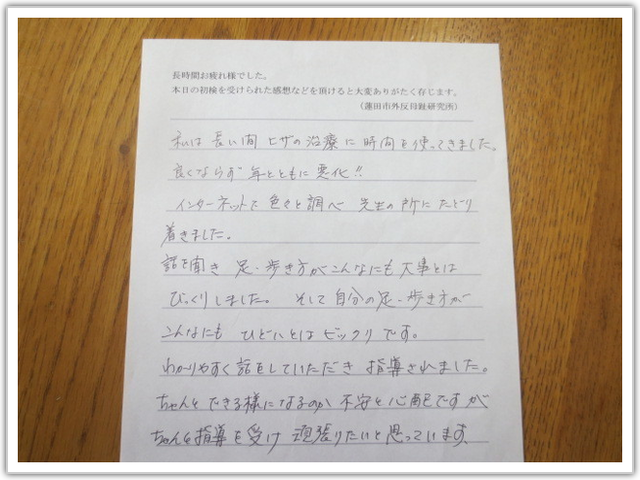 長時間お疲れ様でした。
本日の初検を受けられた感想などを頂けると大変ありがたく存じます。
（蓮田市外反母趾研究所）
私は長い間ヒザの治療に時間を使ってきました。
良くならず年とともに悪化!!
インターネットで色々と調べ 先生の所にたどり
着きました。
話を聞き 足・歩き方がこんなにも大事とは
びっくりしました。 そして自分の足・歩き方が
こんなにも ひどいとはビックリです。
わかりやすく話をしていただき 指導されました。
ちゃんとできる様になるのか 不安と心配ですが
ちゃんと指導を受け 頑張りたいと思っています。